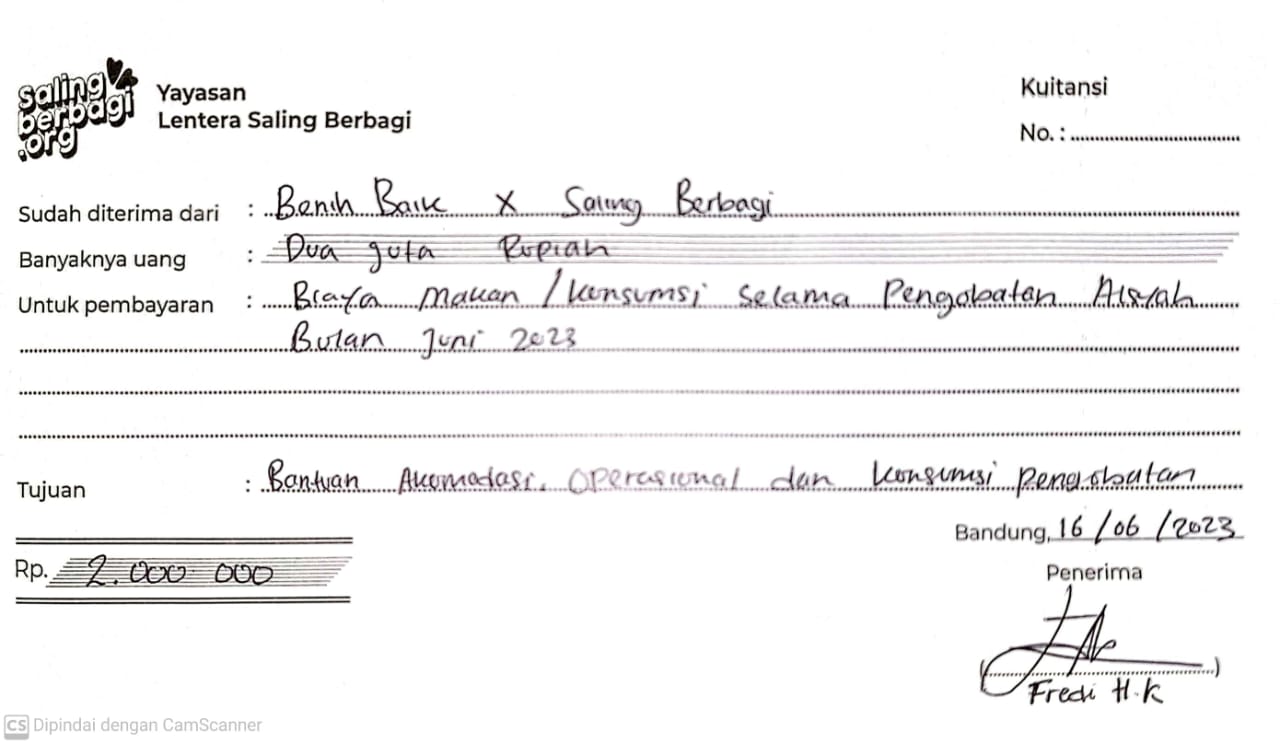 saling berbagi .org
Yayasan
Lentera Saling Berbagi
Kuitansi
No. :
Sudah diterima dari : Benih Baik X Saling Berbagi
Banyaknya uang : Dua Juta Rupiah
Untuk pembayaran : Biaya Makan / konsumsi Selama Pengobatan Aisyah
Bulan Juni 2023
Tujuan : Bantuan Akomodasi. Operasional dan konsumsi pengobatan
Bandung, 16/06/2023
Rp. 2.000 000
Penerima
Fredi H.K
CS Dipindai dengan CamScanner